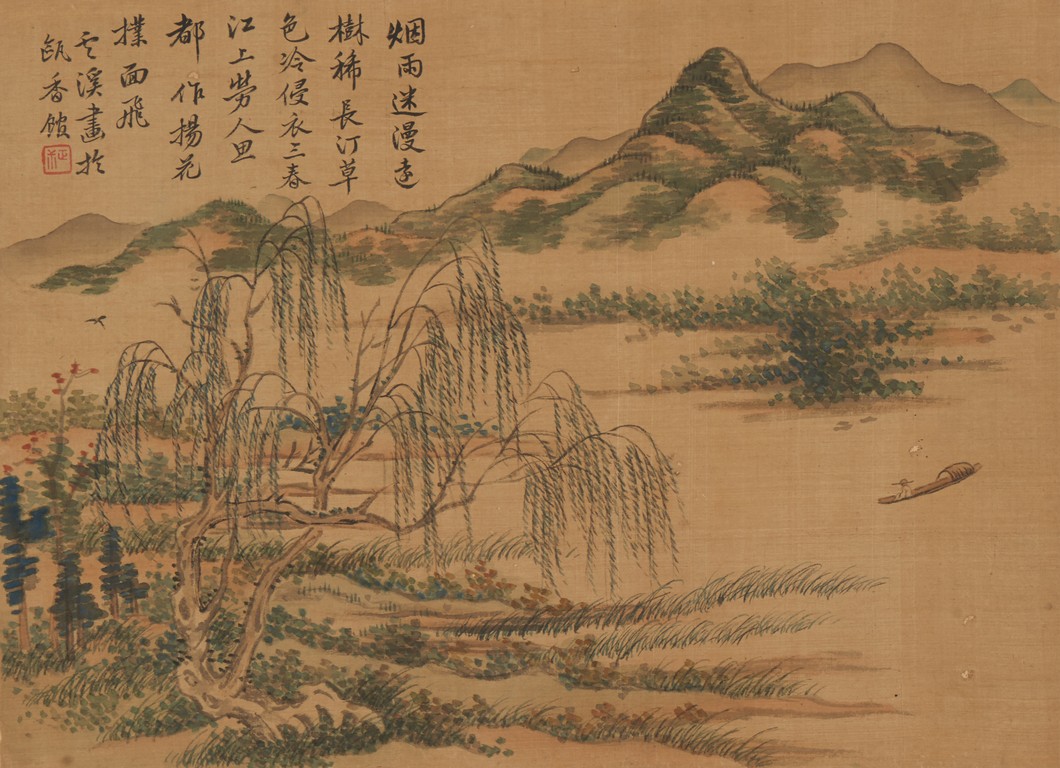 烟雨迷漫遠
樹稀長汀草
色冷侵衣三春
江上勞人思
都作揚花
撲面飛
雲溪畫於
甌香館